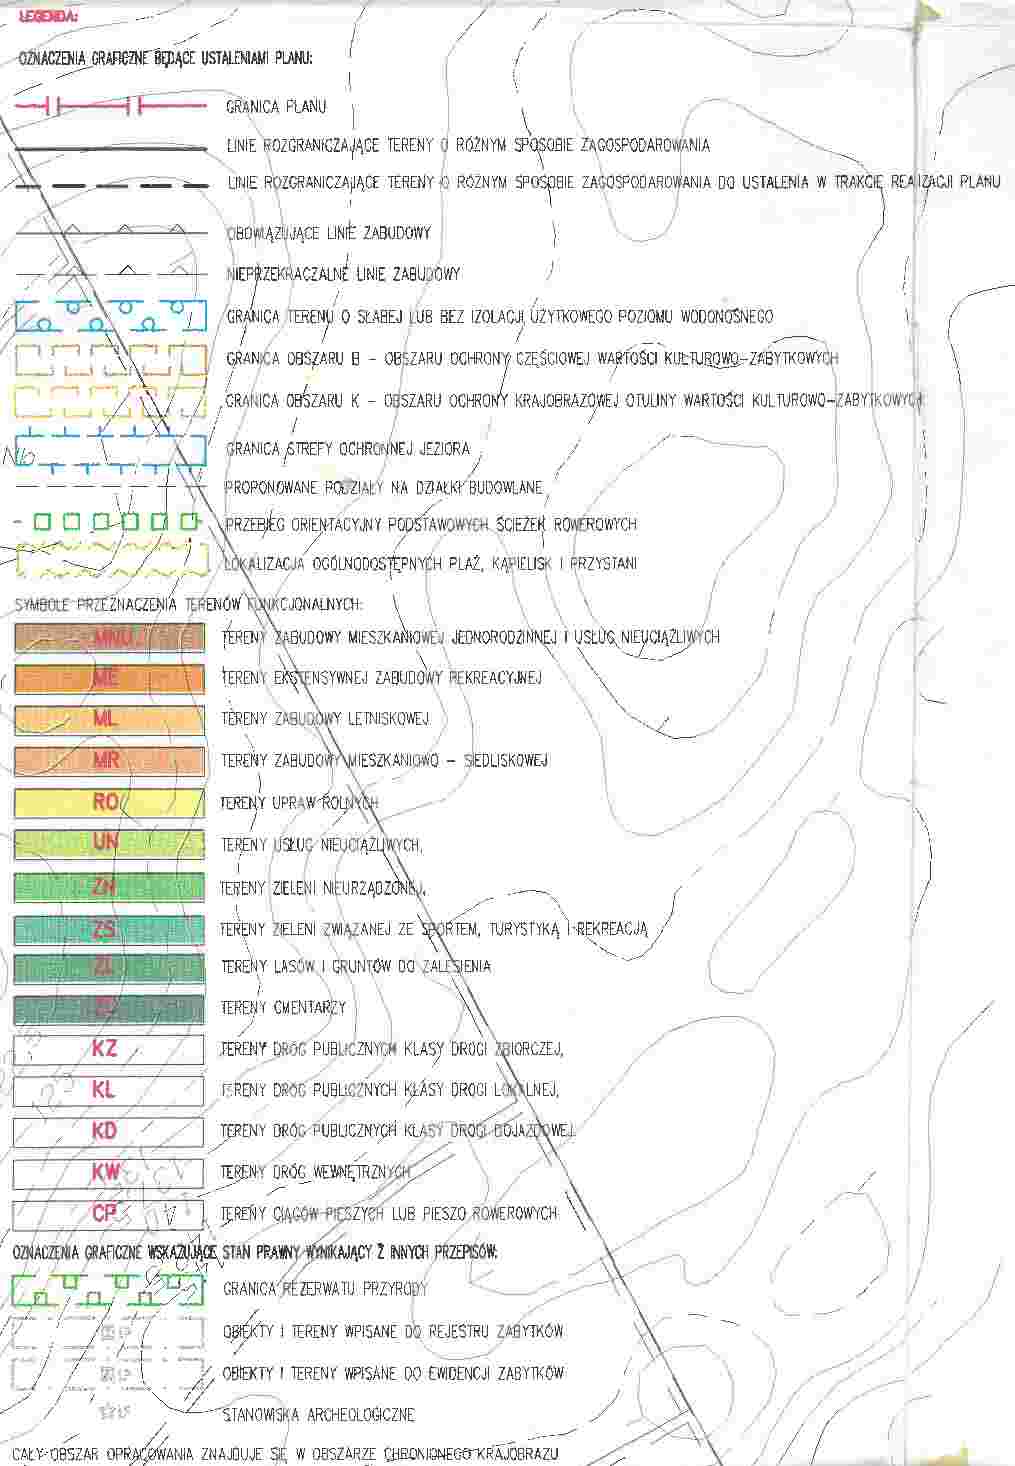 LEGENDA:
OZNACZENIA GRAFICZNE BĘDĄCE USTALENIAMI PLANU:
GRANICA PLANU
LINIE ROZGRANICZAJĄCE TERENY O RÓŻNYM SPOSOBIE ZAGOSPODAROWANIA
LINIE ROZGRANICZAJĄCE TERENY O RÓŻNYM SPOSOBIE ZAGOSPODAROWANIA DO USTALENIA W TRAKCIE REALIZACJI PLANU
OBOWIĄZUJĄCE LINIE ZABUDOWY
NIEPRZEKRACZALNE LINIE ZABUDOWY
GRANICA TERENU O SŁABEJ LUB BEZ IZOLACJI UŻYTKOWEGO POZIOMU WODONOŚNEGO
GRANICA OBSZARU B – OBSZARU OCHRONY CZĘŚCIOWEJ WARTOŚCI KULTUROWO-ZABYTKOWYCH
GRANICA OBSZARU K – OBSZARU OCHRONY KRAJOBRAZOWEJ OTULINY WARTOŚCI KULTUROWO-ZABYTKOWYCH
GRANICA STREFY OCHRONNEJ JEZIORA
PROPONOWANE PODZIAŁY NA DZIAŁKI BUDOWLANE
PRZEBIEG ORIENTACYJNY PODSTAWOWYCH ŚCIEŻEK ROWEROWYCH
LOKALIZACJA OGÓLNODOSTĘPNYCH PLAŻ, KĄPIELISK I PRZYSTANI
SYMBOLE PRZEZNACZENIA TERENÓW FUNKCJONALNYCH:
MNU TERENY ZABUDOWY MIESZKANIOWEJ JEDNORODZINNEJ I USŁUG NIEUCIĄŻLIWYCH
ME TERENY EKSTENSYWNEJ ZABUDOWY REKREACYJNEJ
ML TERENY ZABUDOWY LETNISKOWEJ
MR TERENY ZABUDOWY MIESZKANIOWO – SIEDLISKOWEJ
RO TERENY UPRAW ROLNYCH
UN TERENY USŁUG NIEUCIĄŻLIWYCH,
ZN TERENY ZIELENI NIEURZĄDZONEJ,
ZS TERENY ZIELENI ZWIĄZANEJ ZE SPORTEM, TURYSTYKĄ I REKREACJĄ
ZL TERENY LASÓW I GRUNTÓW DO ZALESIENIA
TERENY CMENTARZY
KZ TERENY DRÓG PUBLICZNYCH KLASY DROGI ZBIORCZEJ,
KL TERENY DRÓG PUBLICZNYCH KLASY DROGI LOKALNEJ,
KD TERENY DRÓG PUBLICZNYCH KLASY DROGI DOJAZDOWEJ,
KW TERENY DRÓG WEWNĘTRZNYCH
CP TERENY CIĄGÓW PIESZYCH LUB PIESZO ROWEROWYCH
OZNACZENIA GRAFICZNE WSKAZUJĄCE STAN PRAWNY WYNIKAJĄCY Z INNYCH PRZEPISÓW:
GRANICA REZERWATU PRZYRODY
OBIEKTY I TERENY WPISANE DO REJESTRU ZABYTKÓW
OBIEKTY I TERENY WPISANE DO EWIDENCJI ZABYTKÓW
STANOWISKA ARCHEOLOGICZNE
CAŁY OBSZAR OPRACOWANIA ZNAJDUJE SIĘ W OBSZARZE CHRONIONEGO KRAJOBRAZU